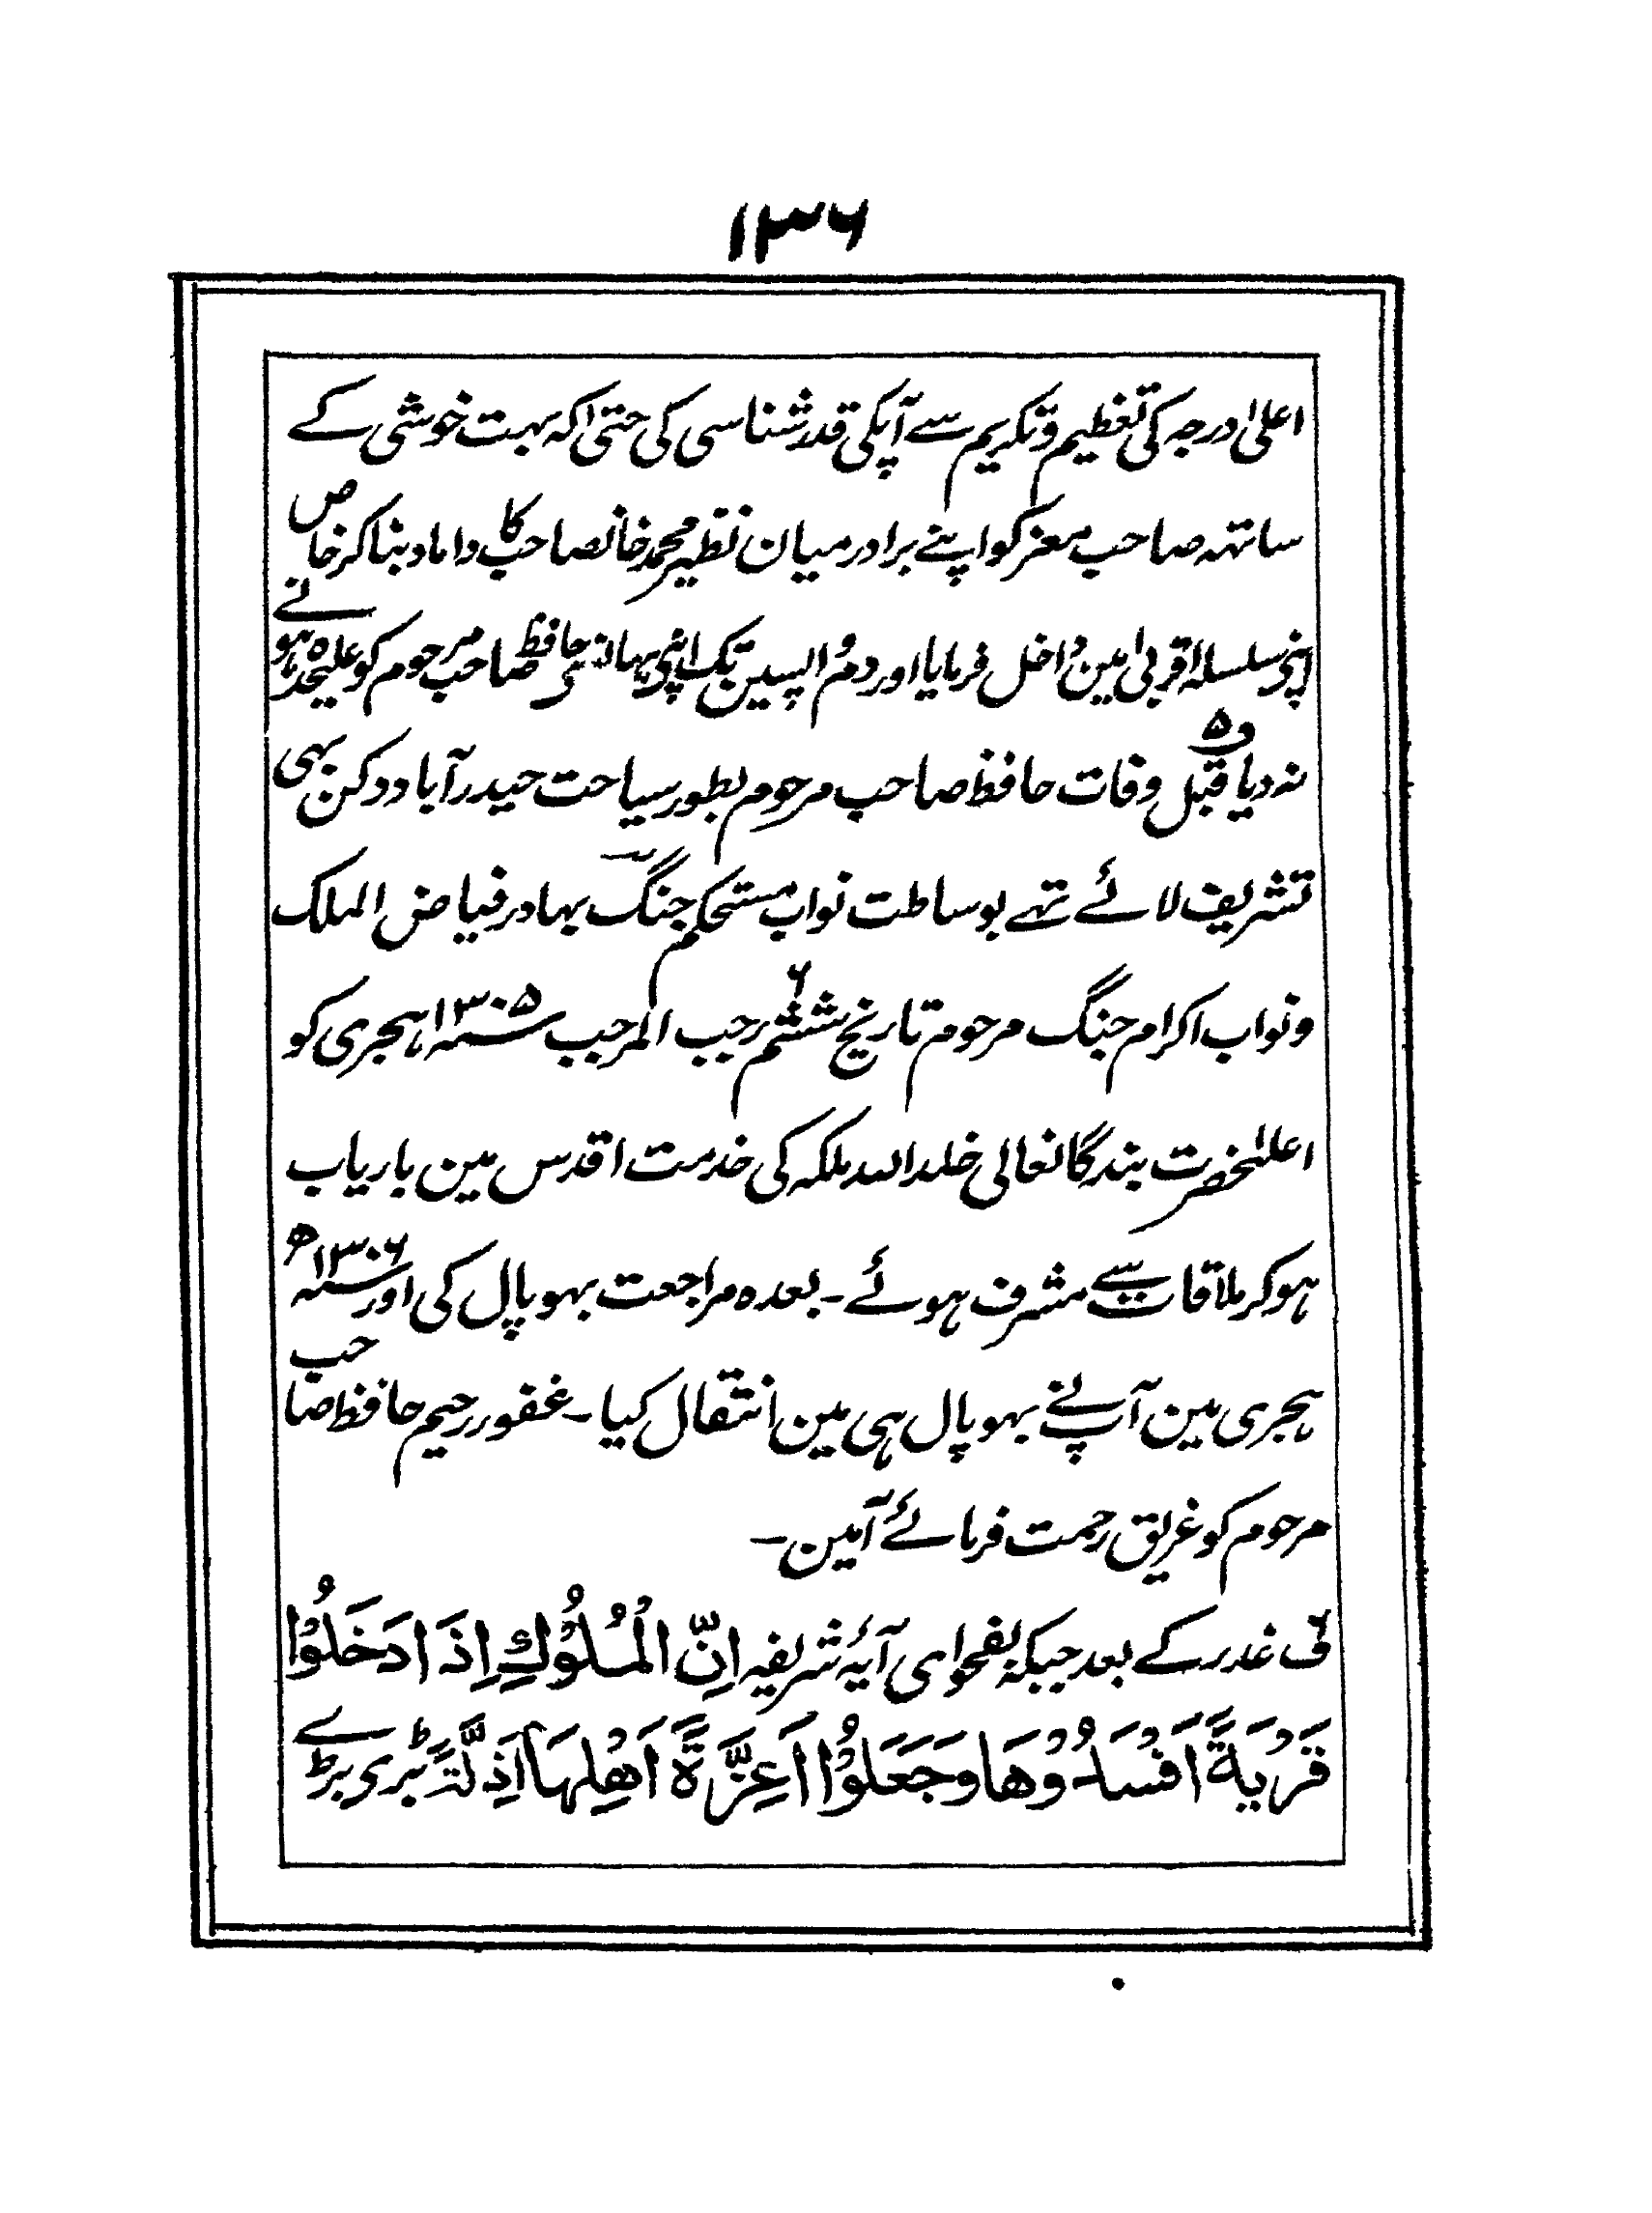 ۱۳۶
اعلیٰ درجہ کی تعظیم و تکریم سے آپکی قدر شناسی کی حتی کہ بہت خوشی کے
ساتہہ صاحب معز کو اپنے برادر میان نظیر محمد خانصاحب کا داماد بنا کر خاص
اپنی سلسلہ اقربیٰ مین داخل فرمایا اور دم واپسین تک اپنی یہان سے حافظ صاحب مرحوم کو علیحدہ ہونے
نہ دیا قبل وفات حافظ صاحب مرحوم بطور سیاحت حیدرآباد دکن بہی
تشریف لائے تہے بوساطت نواب مستحکم جنگ بہادر فیاض الملک
و نواب اکرام جنگ مرحوم تاریخ ششم ۶ رجب المرجب سنہ ۱۳۰۵ ہجری کو
اعلیٰحضرت بندگانعالی خلد اللہ ملکہ کی خدمت اقدس مین باریاب
ہو کر ملاقات سے مشرف ہوئے - بعدہ مراجعت بہوپال کی اور سنہ ۱۳۰۶ھ
ہجری مین آپ نے بہوپال ہی مین انتقال کیا - غفور رحیم حافظ صاحب
مرحوم کو غریق رحمت فرمائے آمین -
ف غدر کے بعد جبکہ بفحوای آیۂ شریفہ اِنَّ الْمُلُوْكَ اِذَا دَخَلُوْا
قَرْيَةً اَفْسَدُوْهَا وَجَعَلُوْا اَعِزَّةَ اَهْلِهَا اَذِلَّةً بڑی بڑے